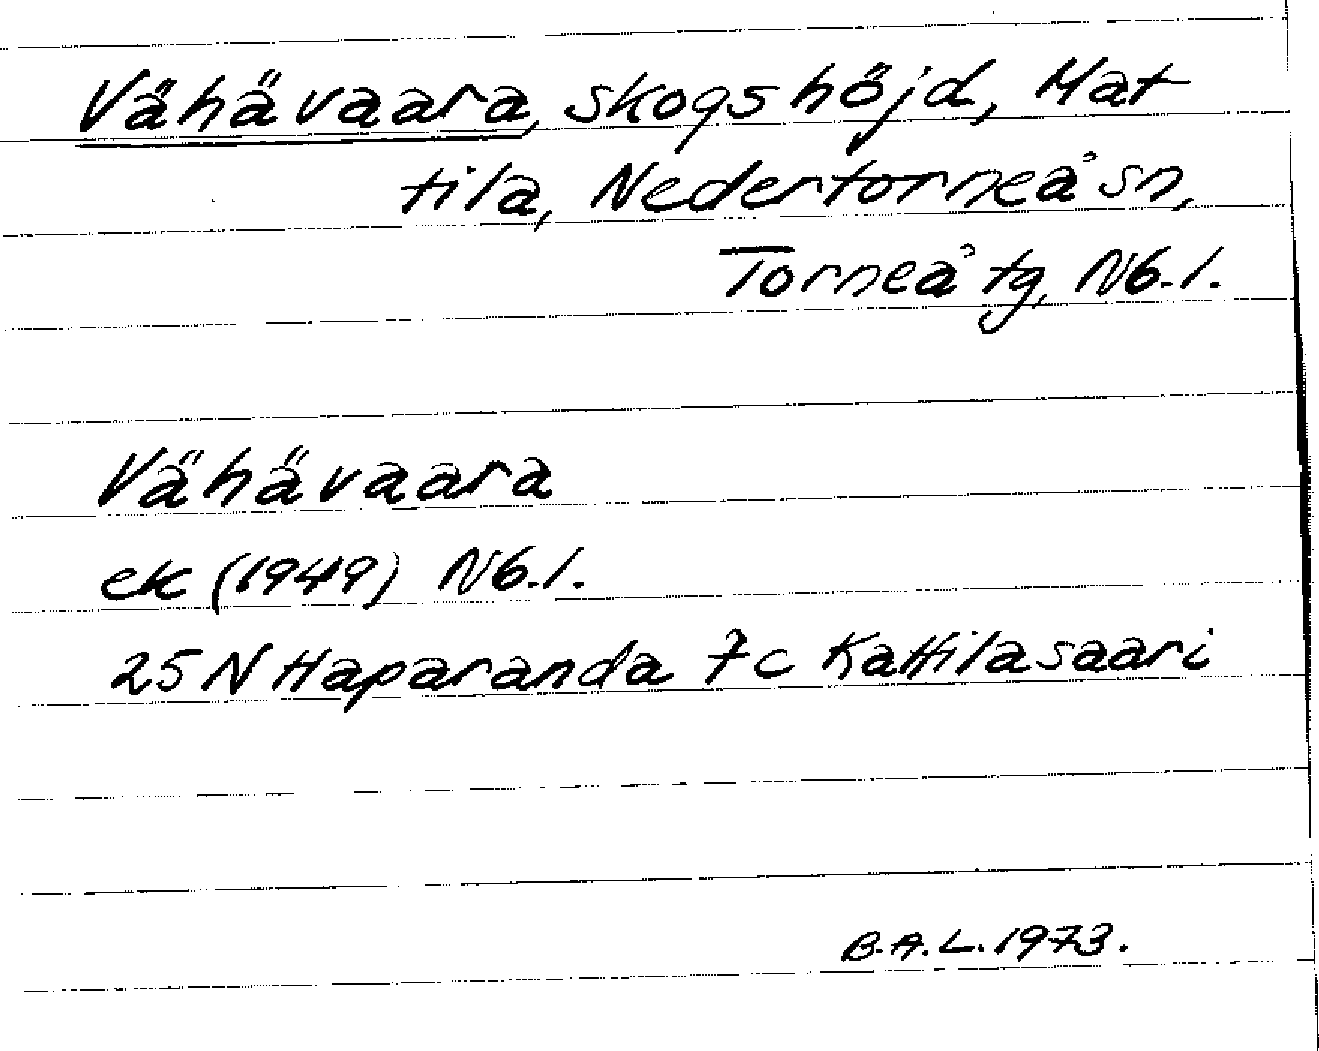 Vähävaara, skogshöjd, Mat
tila, Nedertorneå sn,
Torneå tg, Nb.l.
Vähävaara
ek (1949) Nb.l.
25 N Haparanda 7c Kattilasaari
B.A.L. 1973.